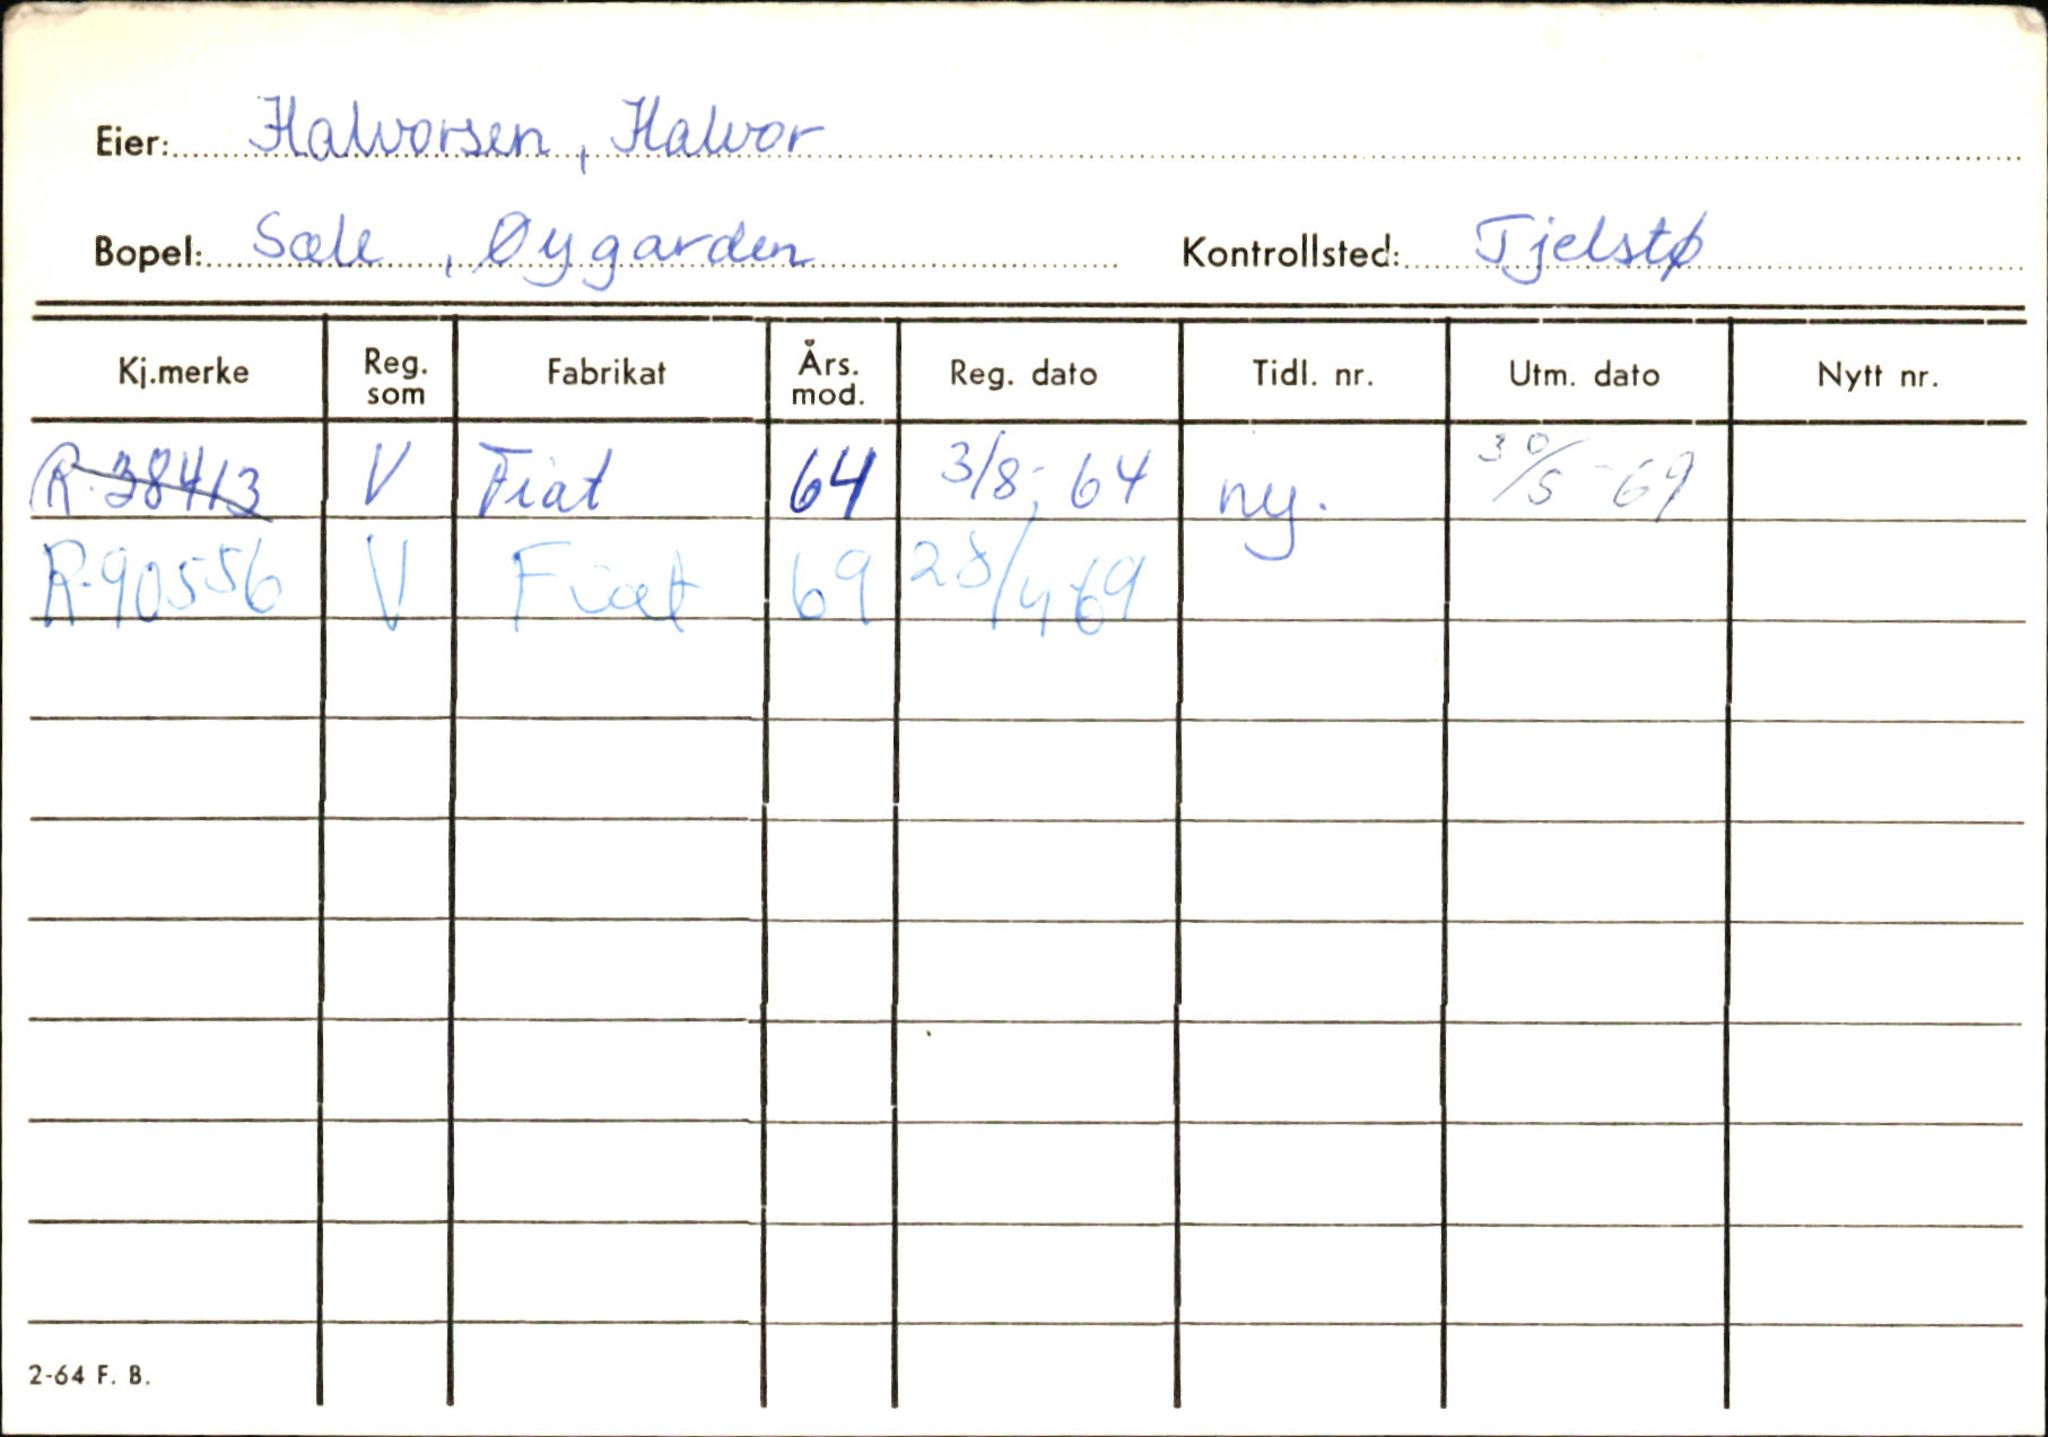 Eier: Halvorsen, Halvor
Bopel: Sæle, Øygarden Kontrollsted: Tjelstø
Kj.merke Reg. som Fabrikat Års. mod. Reg. dato Tidl. nr. Utm. dato Nytt nr.
R-38413 V Fiat 64 3/8-64 ny. 30/5-69
R-90556 V Fiat 69 28/4 69
2-64 F. B.